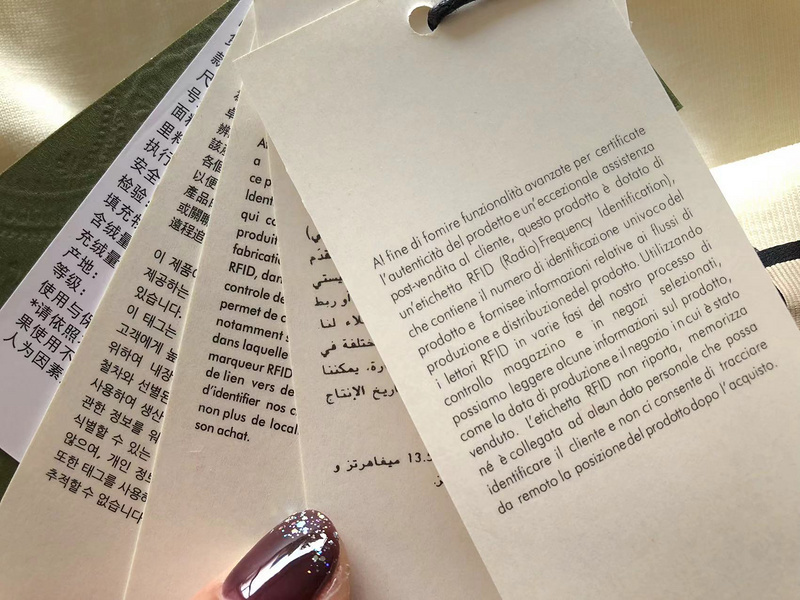 Al fine di fornire funzionalità avanzate per certificate
l'autenticità del prodetto e un'eccezionale assistenza
post-vendita al cliente, questo prodotto è dotato di
un'etichetta RFID (Radio) Frequency Identification),
che contiene il numero di identificazione univoco del
prodotto e fornisee informazioni relative ai flussi di
produzione e distribuzionedel prodotto. Utilizzando
i lettori RFID in varie fasi del nostro processo di
controllo magazzino e in negozi selezionati,
possiamo leggere alcune informazioni sul prodotto,
come la data di produzione e il negozio in cui è stato
venduto. L'etichetta RFID non riporta, memorizza
né è collegata ad aleun dato personale che possa
identificare il cliente e non ci consente di tracciare
da remoto la posizione del prodotto dopo l'acquisto.
尺
号
面料
里料
执行
安全
检验
填充物
含绒量
充绒量
产地:
等级:
使用与保
*请依照
果使用不
人为因素
辨
該產
各個
以便
產品
或關聯
遠程追
이 제품
제공하는
있습니다.
이 태그는
고객에게 높
위하여 내장
철차와 선별된
사용하여 생산
관한 정보를 위
식별할 수 있는
않으며, 개인 정보
또한 태그를 사용하
추적할 수 없습니다
a
ce p
Ident
qui co
produit
fabricati
RFID, dan
controle de
permet de c
notamment s
dans laquelle
marqueur RFID
de lien vers de
d'identifier nos c
non plus de local
son achat.
أو ربط
لاء لنا
ختلفة في
رة. يمكننا
ريخ الإنتاج
13. ميغاهرتز و